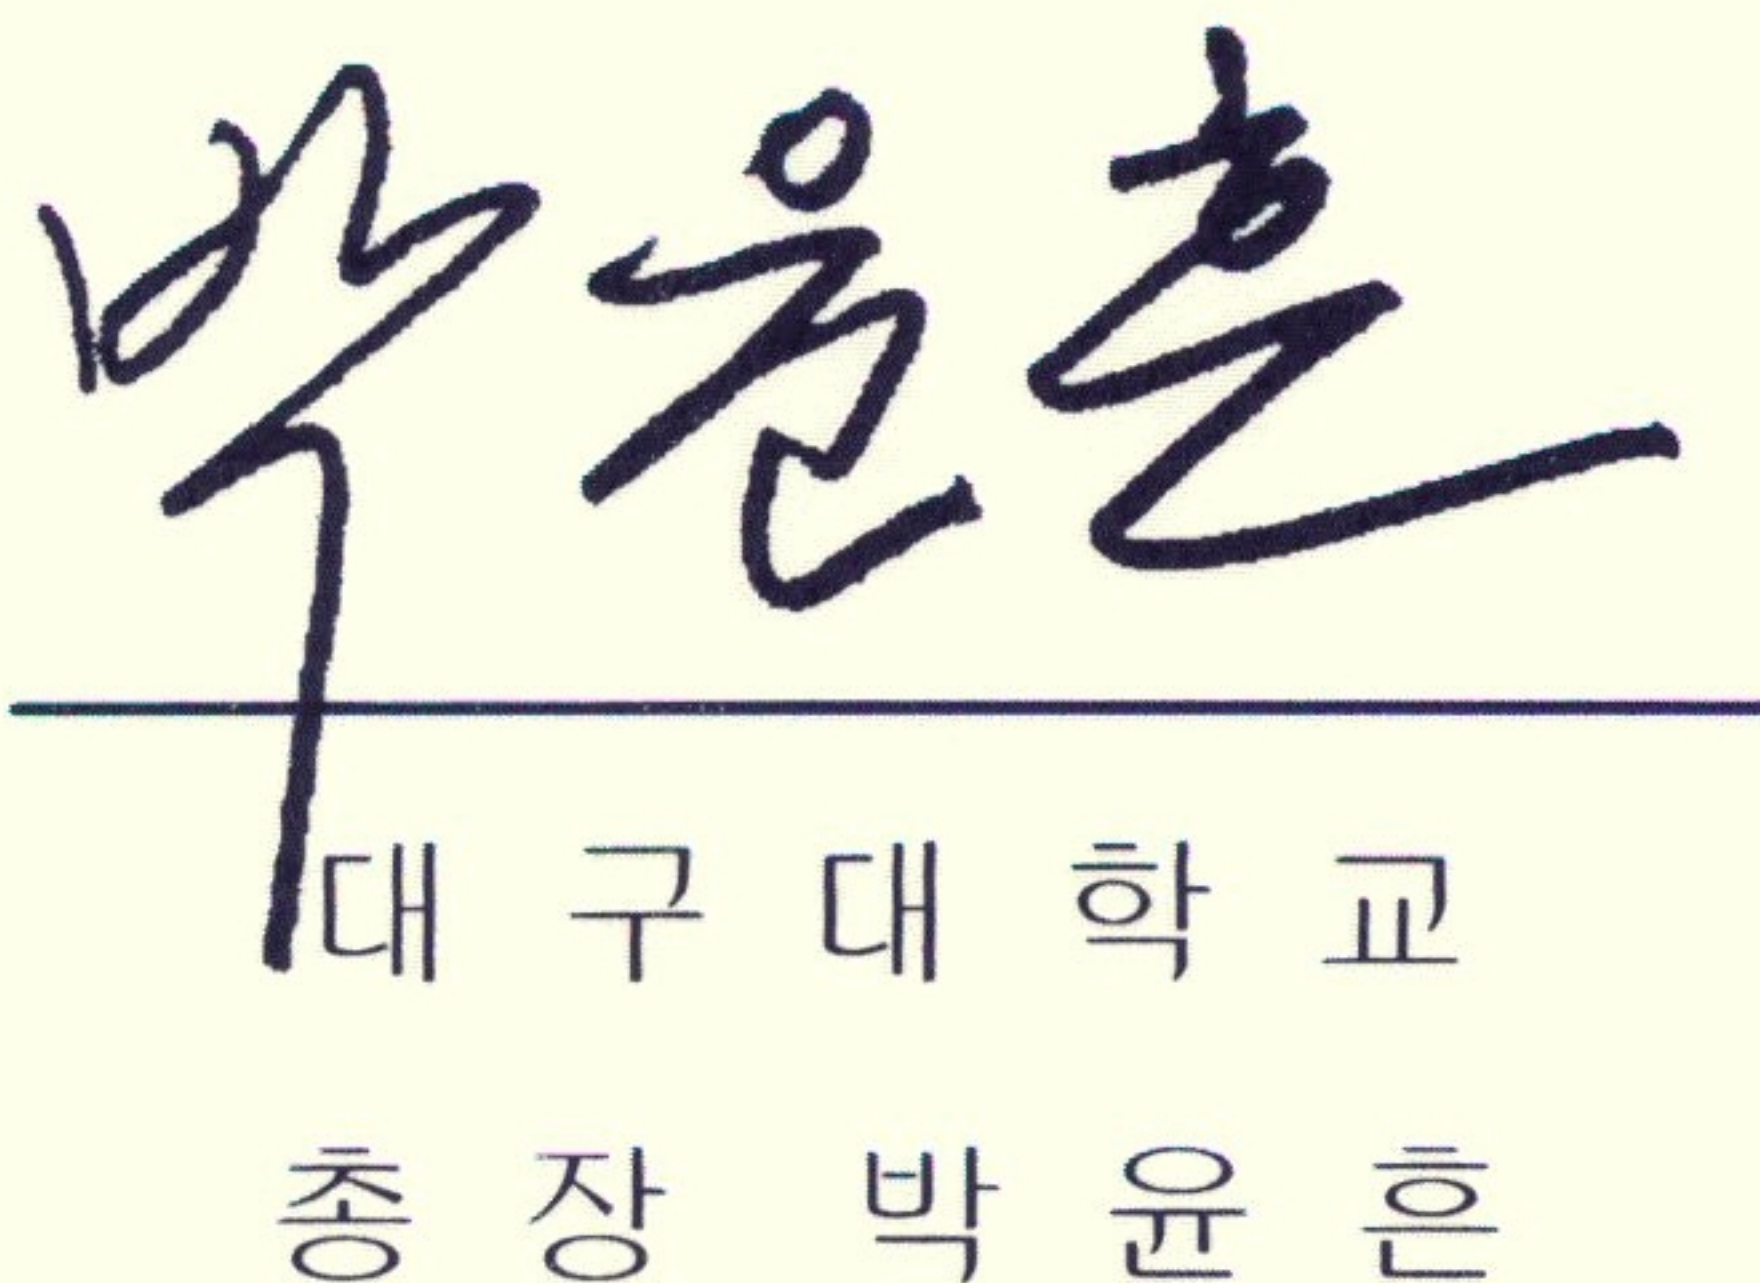 박윤흔
대구대학교
총장 박윤흔